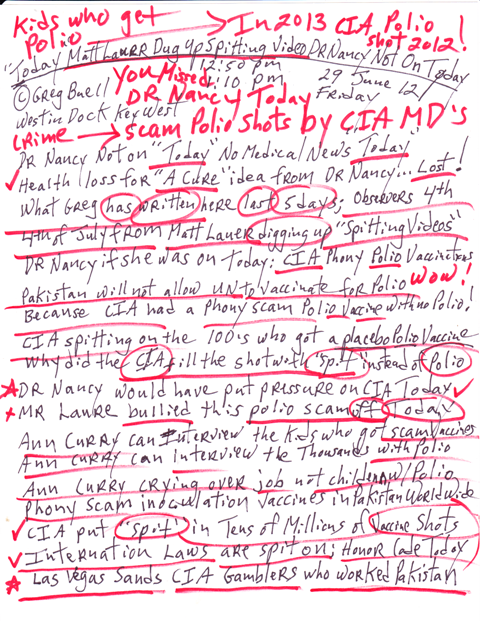 Kids who get
Polio → In 2013 CIA Polio shot 2012!
"Today Matt Lauer Dug Up Spitting Video DR Nancy Not On Today
12:50 pm
You Missed 1:10 pm 29 June 12
© Greg Buell DR Nancy Today Friday
Westin Dock Key West
Crime → Scam Polio Shots by CIA MD's
DR Nancy Not on "Today" No Medical News "Today"
Health loss for "A Cure" idea from DR Nancy... Lost!
What Greg has written here last 5 days; Observers 4th
4th of July from Matt Lauer digging up "Spitting Videos"
DR Nancy if she was on Today: CIA Phony Polio Vaccinations
Pakistan will not allow UN to Vaccinate for Polio WOW!
Because CIA had a Phony scam Polio Vaccine with no Polio!
CIA spitting on the 100's who got a placebo Polio Vaccine
Why did the CIA fill the shot with "spit" instead of Polio
DR Nancy would have put pressure on CIA Today
MR Lawre bullied this polio scam off Today
Ann Curry can Interview the Kids who got scam Vaccines
Ann Curry can Interview the Thousands with Polio
Ann Curry crying over job not children w/ Polio
Phony Scam inoculation vaccines in Pakistan World Wide
CIA put "spit" in Tens of Millions of Vaccine Shots
Internation Laws are spit on; Honor Code Today
Las Vegas Sands CIA Gamblers who worked Pakistan